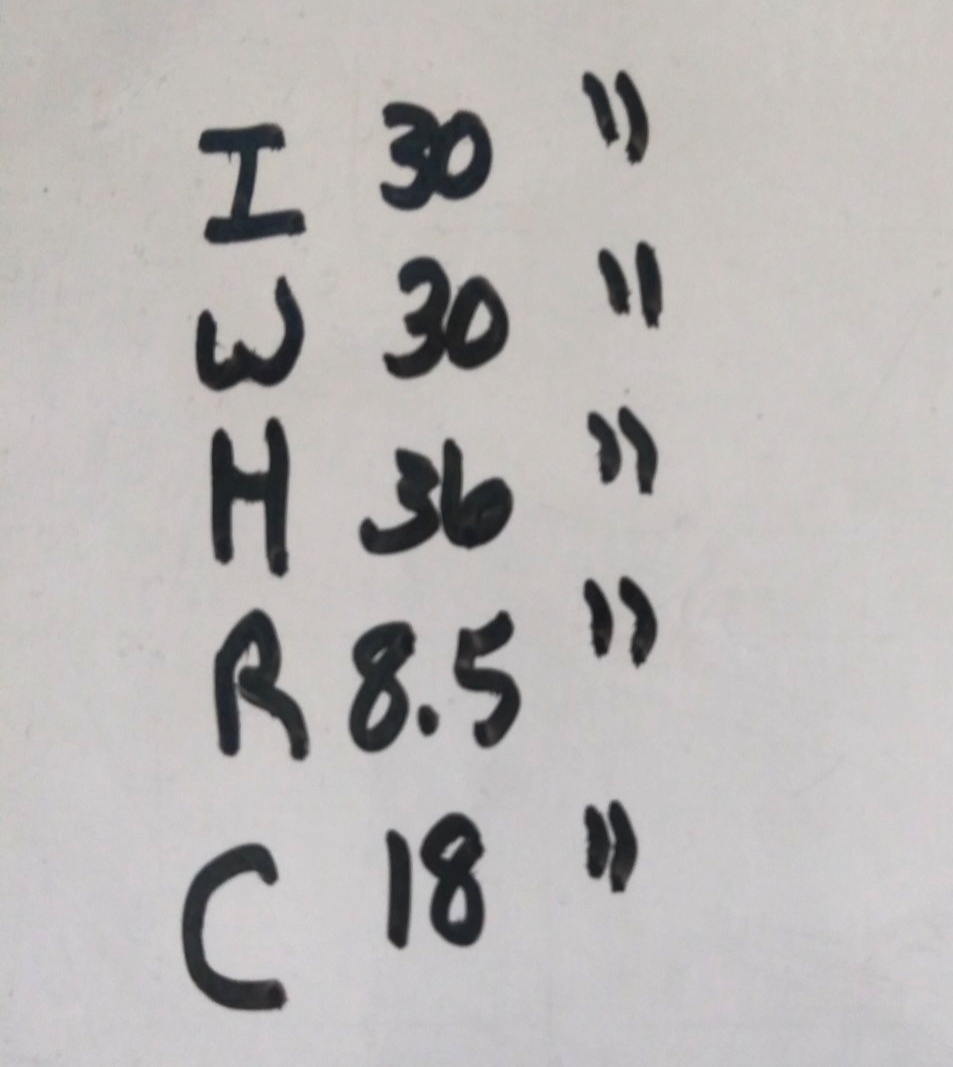 I 30 "
W 30 "
H 36 "
R 8.5 "
C 18 "